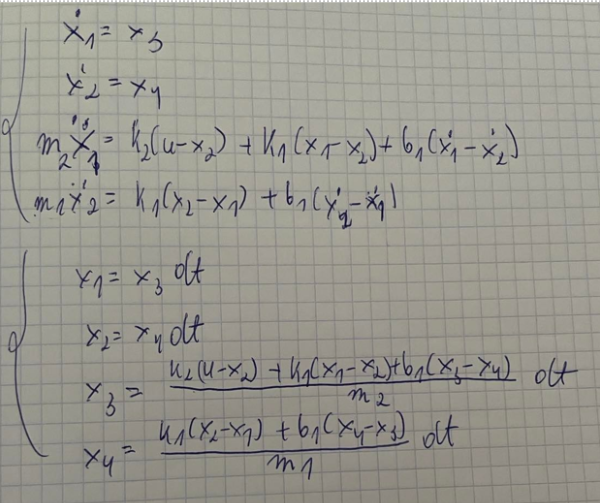 ẋ1 = x3
ẋ2 = x4
m2ẍ1 = k2(u-x2) + k1(x1-x2) + b1(ẋ1-ẋ2)
m1ẍ2 = k1(x2-x1) + b1(ẋ2-ẋ1)
x1 = x3 dt
x2 = x4 dt
x3 = k2(u-x2) + k1(x1-x2) + b1(x3-x4) / m2 dt
x4 = k1(x2-x1) + b1(x4-x3) / m1 dt